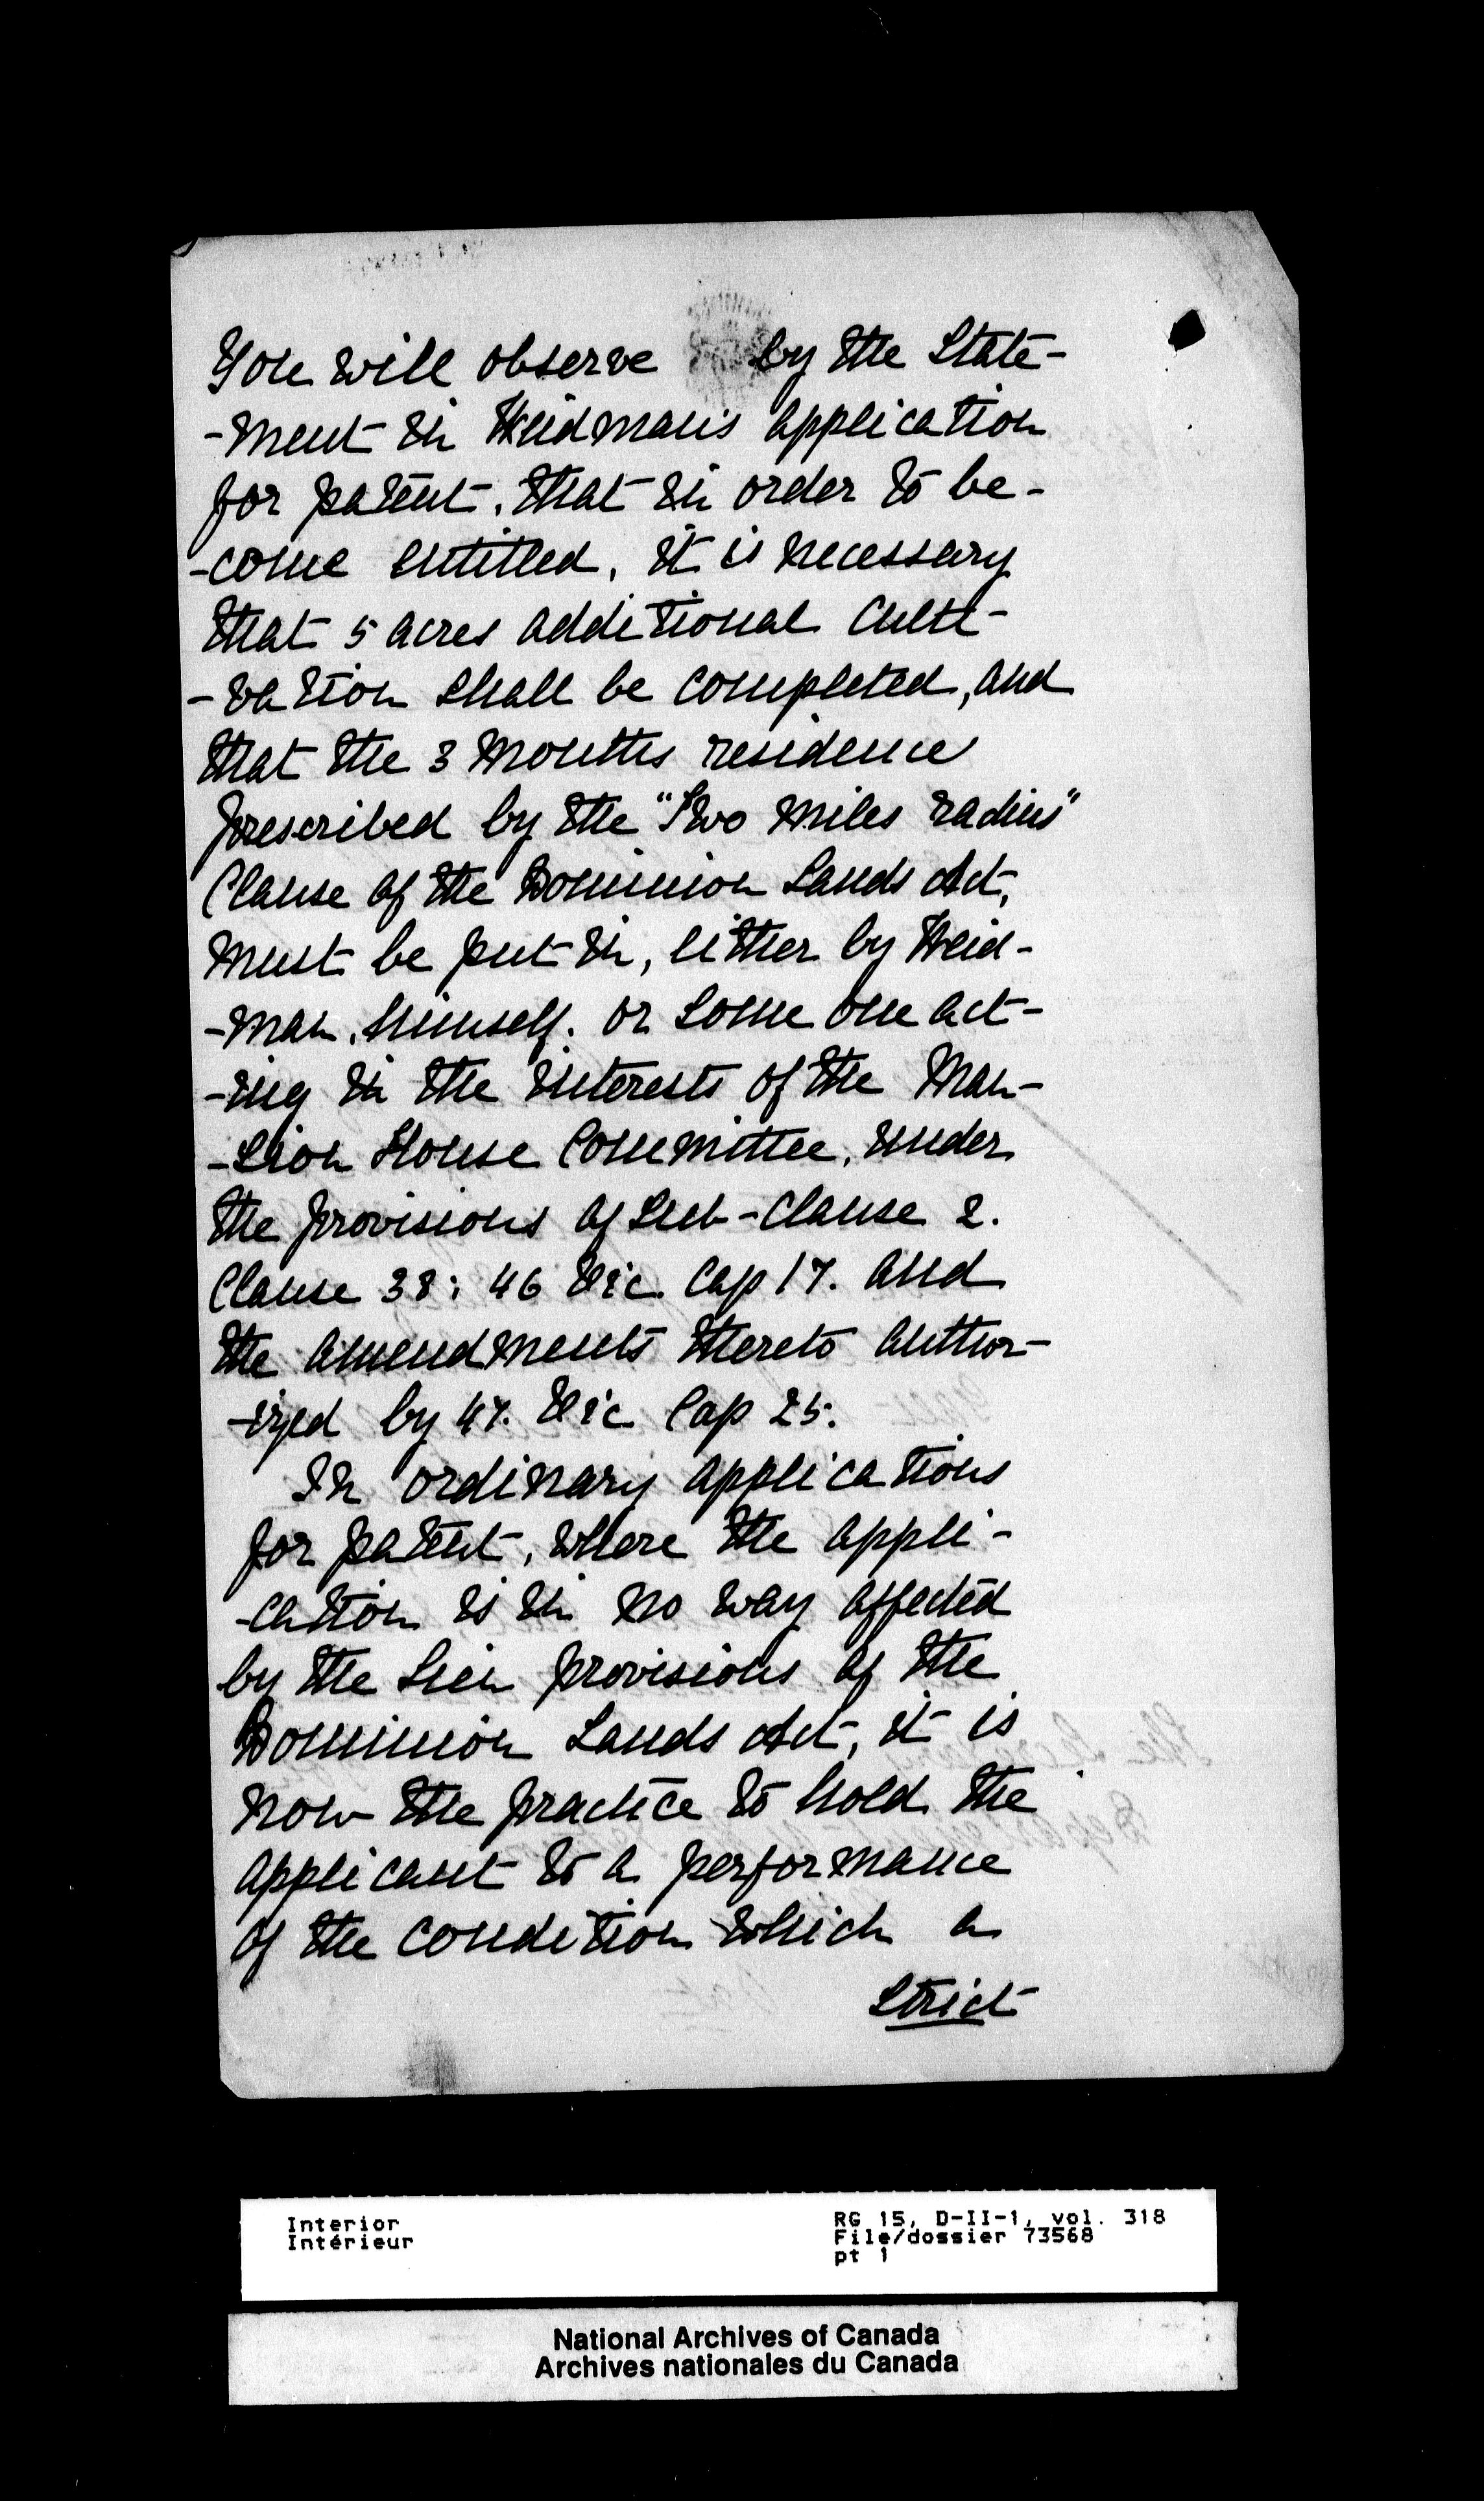 You will observe by the State-
-ment in Heidman's application
for patent, that in order to be-
-come entitled, it is necessary
that 5 acres additional Culti-
-vation shall be completed, and
that the 3 months residence
prescribed by the "Two miles radius"
Clause of the Dominion Lands Act,
must be put in, either by Heid-
-man, himself. or some one act-
-ing in the interests of the Man-
-sion House Committee, under
the provisions of Sub-Clause 2.
Clause 38; 46 Vic. Cap 17. and
the amendments thereto author-
-ized by 47. Vic Cap 25.
In ordinary applications
for patent, where the appli-
-cation is in no way affected
by the Lien provisions of the
Dominion Lands Act, it is
now the practice to hold the
applicant to a performance
of the condition which a
strict
Interior
Intérieur
RG 15, D-II-1, vol. 318
File/dossier 73568
pt 1
National Archives of Canada
Archives nationales du Canada